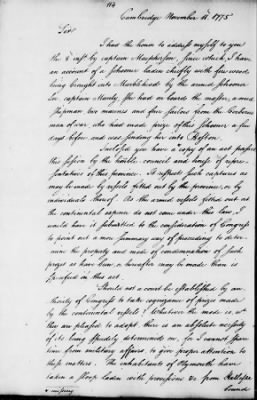 114
Cambridge November 11. 1775
Sir
I had the honor to address myself to you
the 8 inst by captain Macpherson, since which, I have
an account of a schooner laden chiefly with fire wood
being brought into Marblehead by the armed schooner
Lee captain Manly. She had on board the master, a mid
shipman two marines and four sailors from the Cerberus
man of war, who had made prize of this schooner a few
days before and was sending her into Boston.
Inclosed you have a copy of an act passed
this session by the honble council and house of repre
sentatives of this province. It respects such captures as
may be made by vessels fitted out by the province, or by
individuals thereof. As the armed vessels fitted out at
the continental expence do not come under this law, I
would have it submitted to the consideration of Congress
to point out a more summary way of proceeding to deter
mine the property and mode of condemnation of such
prizes as have been or hereafter may be made than is
specified in this act.
Should not a court be established by au
thority of Congress to take cognizance of prizes made
by the continental vessels? Whatever the mode is, wh
they are pleased to adopt, there is an absolute necessity
of its being speedily determined on, for I cannot spare
time from military affairs to give proper attention to
these matters. The inhabitants of Plymouth have
taken a sloop laden with provisions &c from Hallifax
bound
* missing